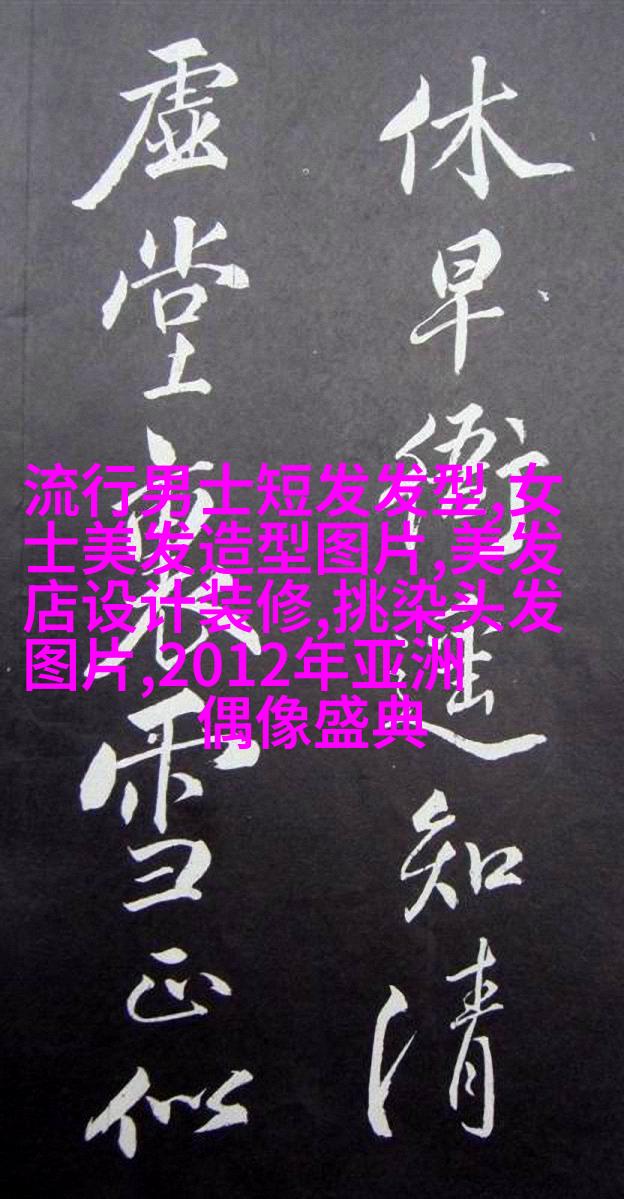 休早衙知清
虚堂雪正似
流行男士短发发型,女
士美发造型图片,美发
店设计装修,挑染头发
图片,2012年亚洲
偶像盛典